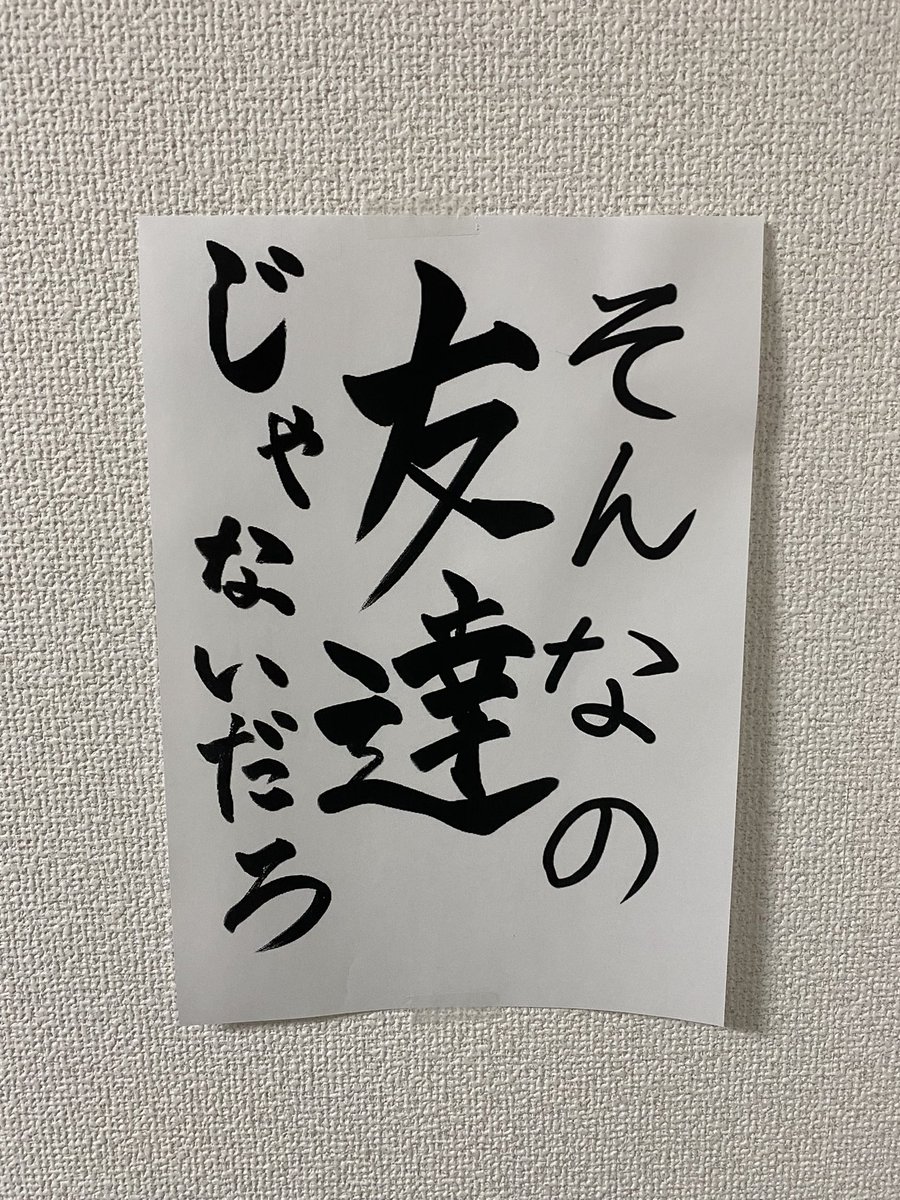 そんなの
友達
じゃないだろ